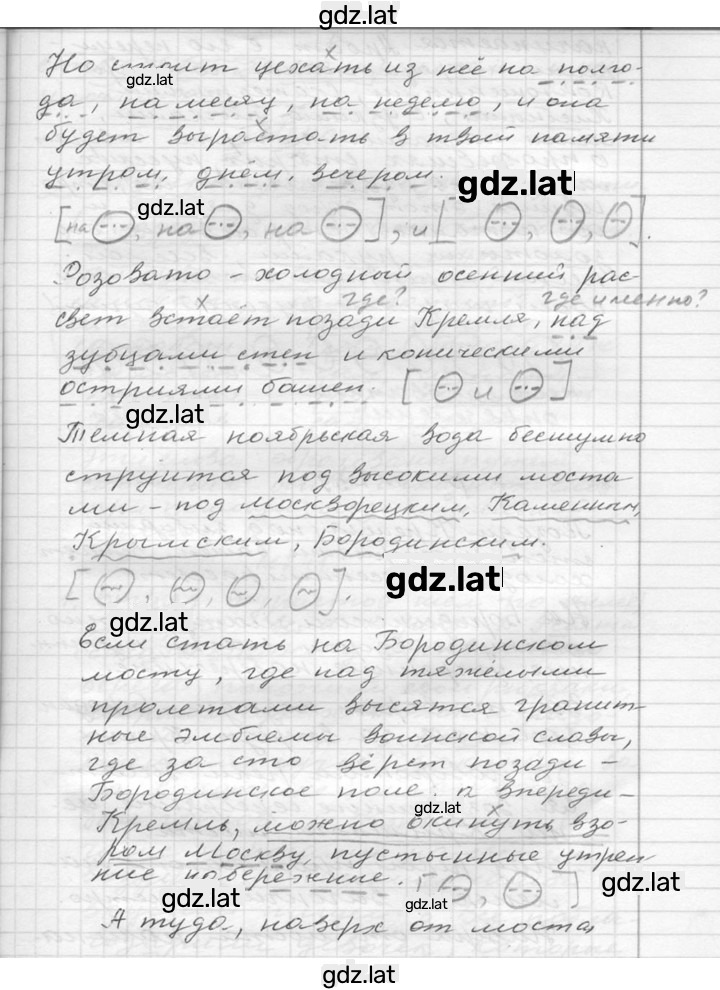 gdz.lat
Но стоит уехать из неё на полго-
gdz.lat
да, на месяц, на неделю, и она
будет вырастать в твоей памяти
утром, днём, вечером.
gdz.lat
gdz.lat
[на, на, на], и [, , ].
Розовато-холодный осенний рас-
где? где именно?
свет встаёт позади Кремля, над
зубцами стен и коническими
остриями башен. [ и ]
gdz.lat
Темная ноябрьская вода бесшумно
струится под высокими моста-
ми - под Москворецким, Каменным,
Крымским, Бородинским.
gdz.lat
[ , , , ].
gdz.lat
Если стать на Бородинском
мосту, где над тяжёлыми
пролетами высятся гранит-
ные эмблемы воинской славы,
где за сто вёрст позади -
Бородинское поле. а впереди -
gdz.lat
Кремль, можно окинуть взо-
ром Москву, пустынные утрен
ние набережные. [ , ]
gdz.lat
gdz.lat
gdz.lat
А туда, наверх от моста,
gdz.lat